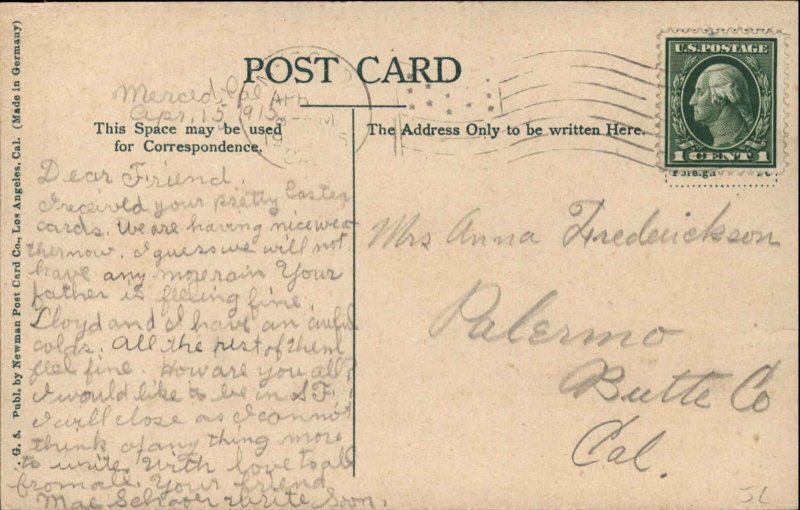 G. 5. Publ. by Newman Post Card Co., Los Angeles, Cal. (Made in Germany)
POST CARD
This Space may be used
for Correspondence.
The Address Only to be written Here.
U.S. POSTAGE
1 CENT 1
Foreign
Merced, Cal
Apr. 15, 1915
Dear Friend.
I receivld your pretty Easter
cards. We are having nice wea
ther now. I guess we will not
have any more rain Your
father is feeling fine.
Lloyd and I have an awful
colds. All the rest of them
feel fine. How are you all?
I would like to be in S F.
I will close as I cannot
think of any thing more
to write. With love to all
from all. Your friend
Mae write soon.
Mrs Anna Frederickson
Palermo
Butte Co
Cal.